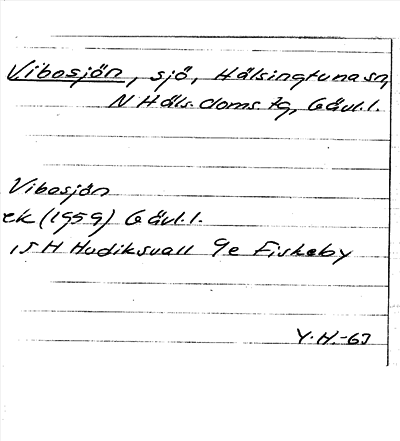 Vibosjön, sjö, Hälsingtuna sn,
N Häls. doms. tg, Gävl.l.
Vibosjön
ek (1959) Gävl.l.
15H Hudiksvall 9e Fiskeby
Y.H.-63